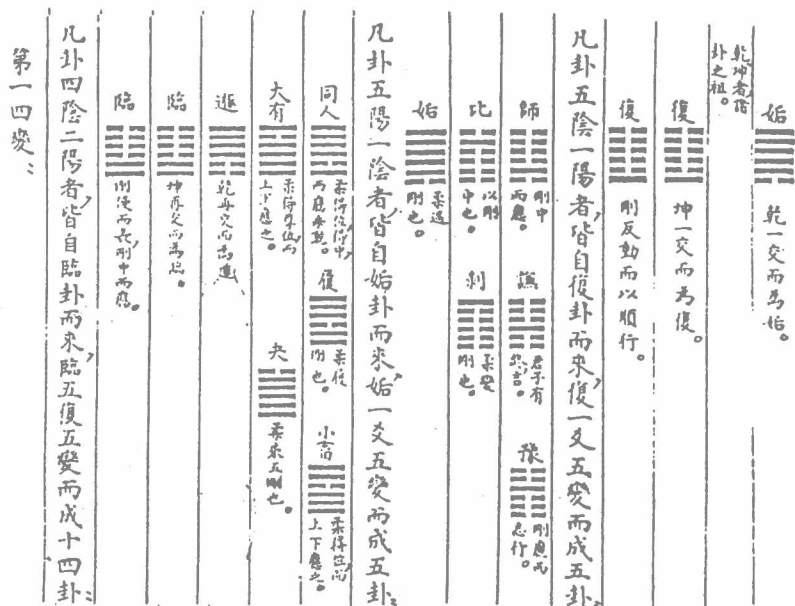 姤 乾一交而為姤。
乾坤者諸卦之祖。
復 坤一交而為復。
復 剛反動而以順行。
凡卦五陰一陽者,皆自復卦而來,復一爻五變而成五卦:
師 剛中而應。 謙 君子有終吉。 豫 剛應而志行。
比 以剛中也。 剝 柔變剛也。
姤 柔遇剛也。
凡卦五陽一陰者,皆自姤卦而來,姤一爻五變而成五卦:
同人 柔得位得中,而應乎乾。 履 柔履剛也。 小畜 柔得位而上下應之。
大有 柔得尊位而上下應之。 夬 柔乘五剛也。
遯 乾再交而為遯
臨 坤再交而為臨。
臨 剛浸而長,剛中而應。
凡卦四陰二陽者,皆自臨卦而來,臨五復五變而成十四卦:
第一四變: